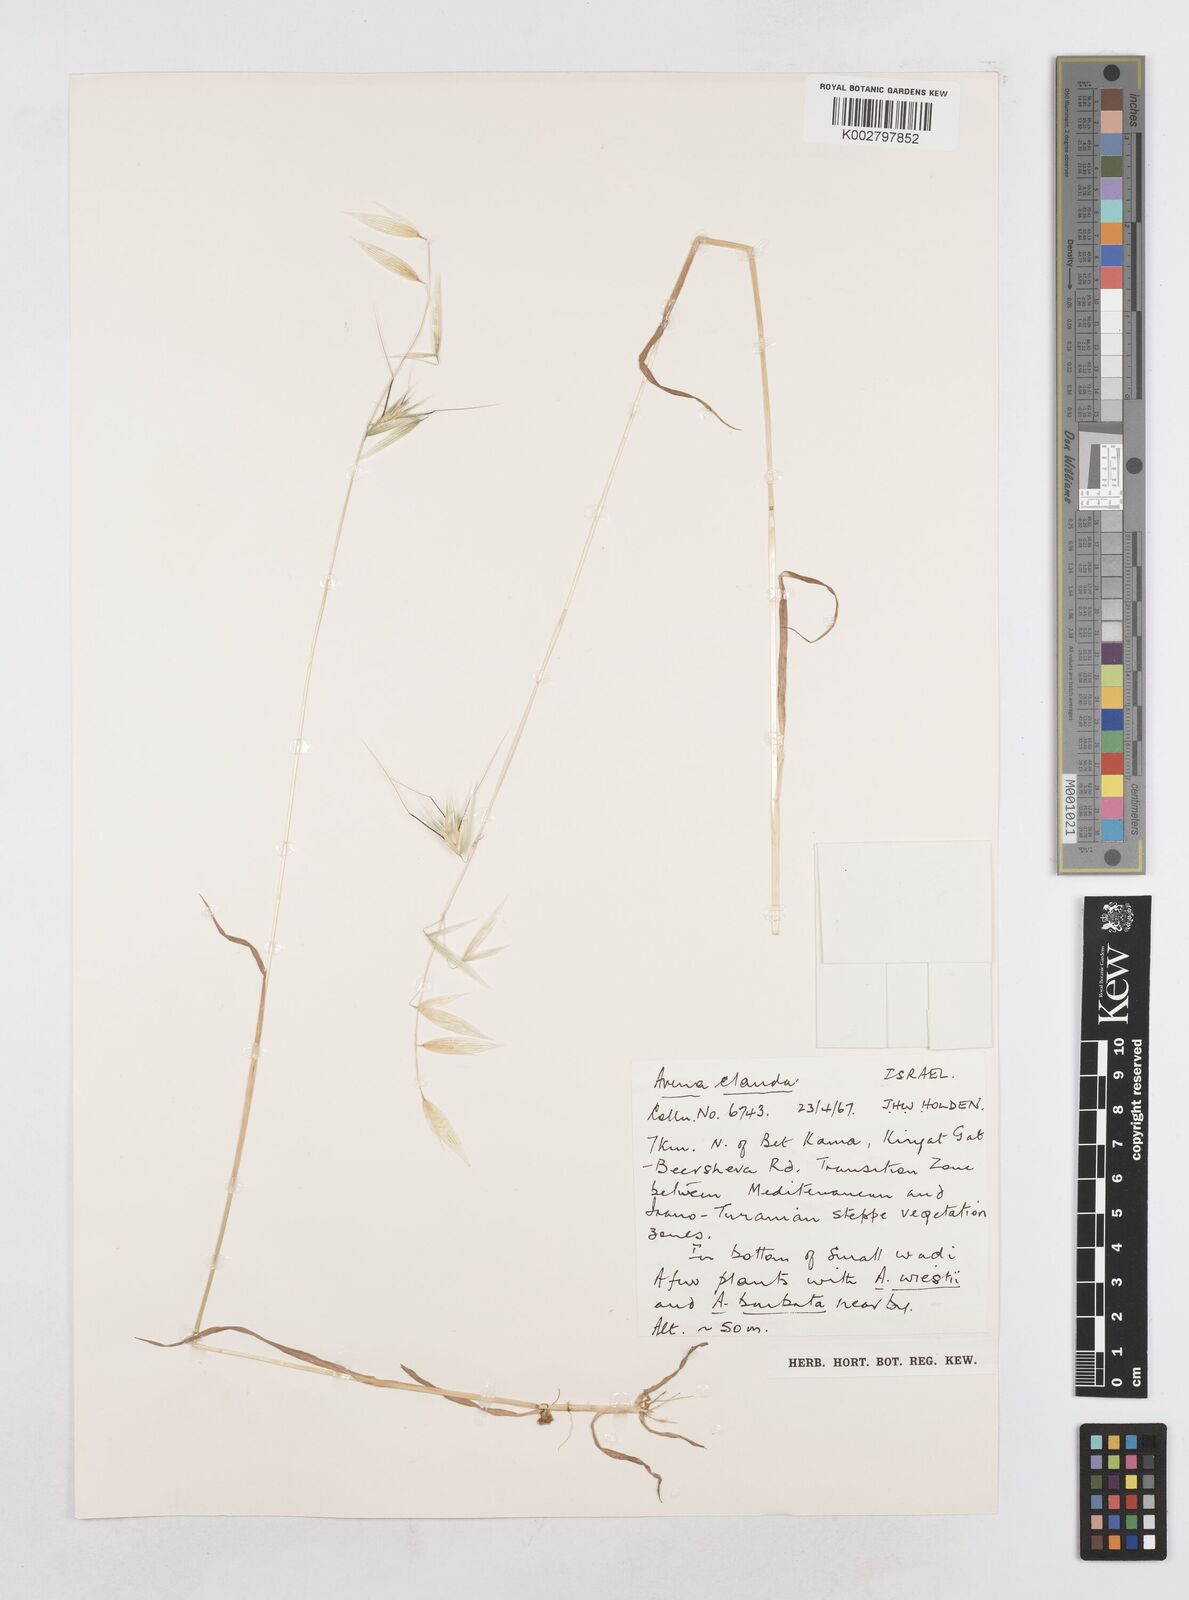 ROYAL BOTANIC GARDENS KEW
K002797852
Avena clauda. ISRAEL.
Colln. No. 6743. 23/4/67. JHW HOLDEN.
7km. N. of Bet Kama, Kiryat Gat
-Beersheva Rd. Transition Zone
between Mediterranean and
Irano-Turanian steppe vegetation
zones.
In bottom of small wadi
A few plants with A. wiestii
and A. barbata nearby.
Alt. ~ 50m.
HERB. HORT. BOT. REG. KEW.
inches
centimeters
Density
Don Williams
M001021
Royal Botanic Gardens
Kew
copyright reserved
0 1 2 3 4 5 6 7 8 9 10
cm